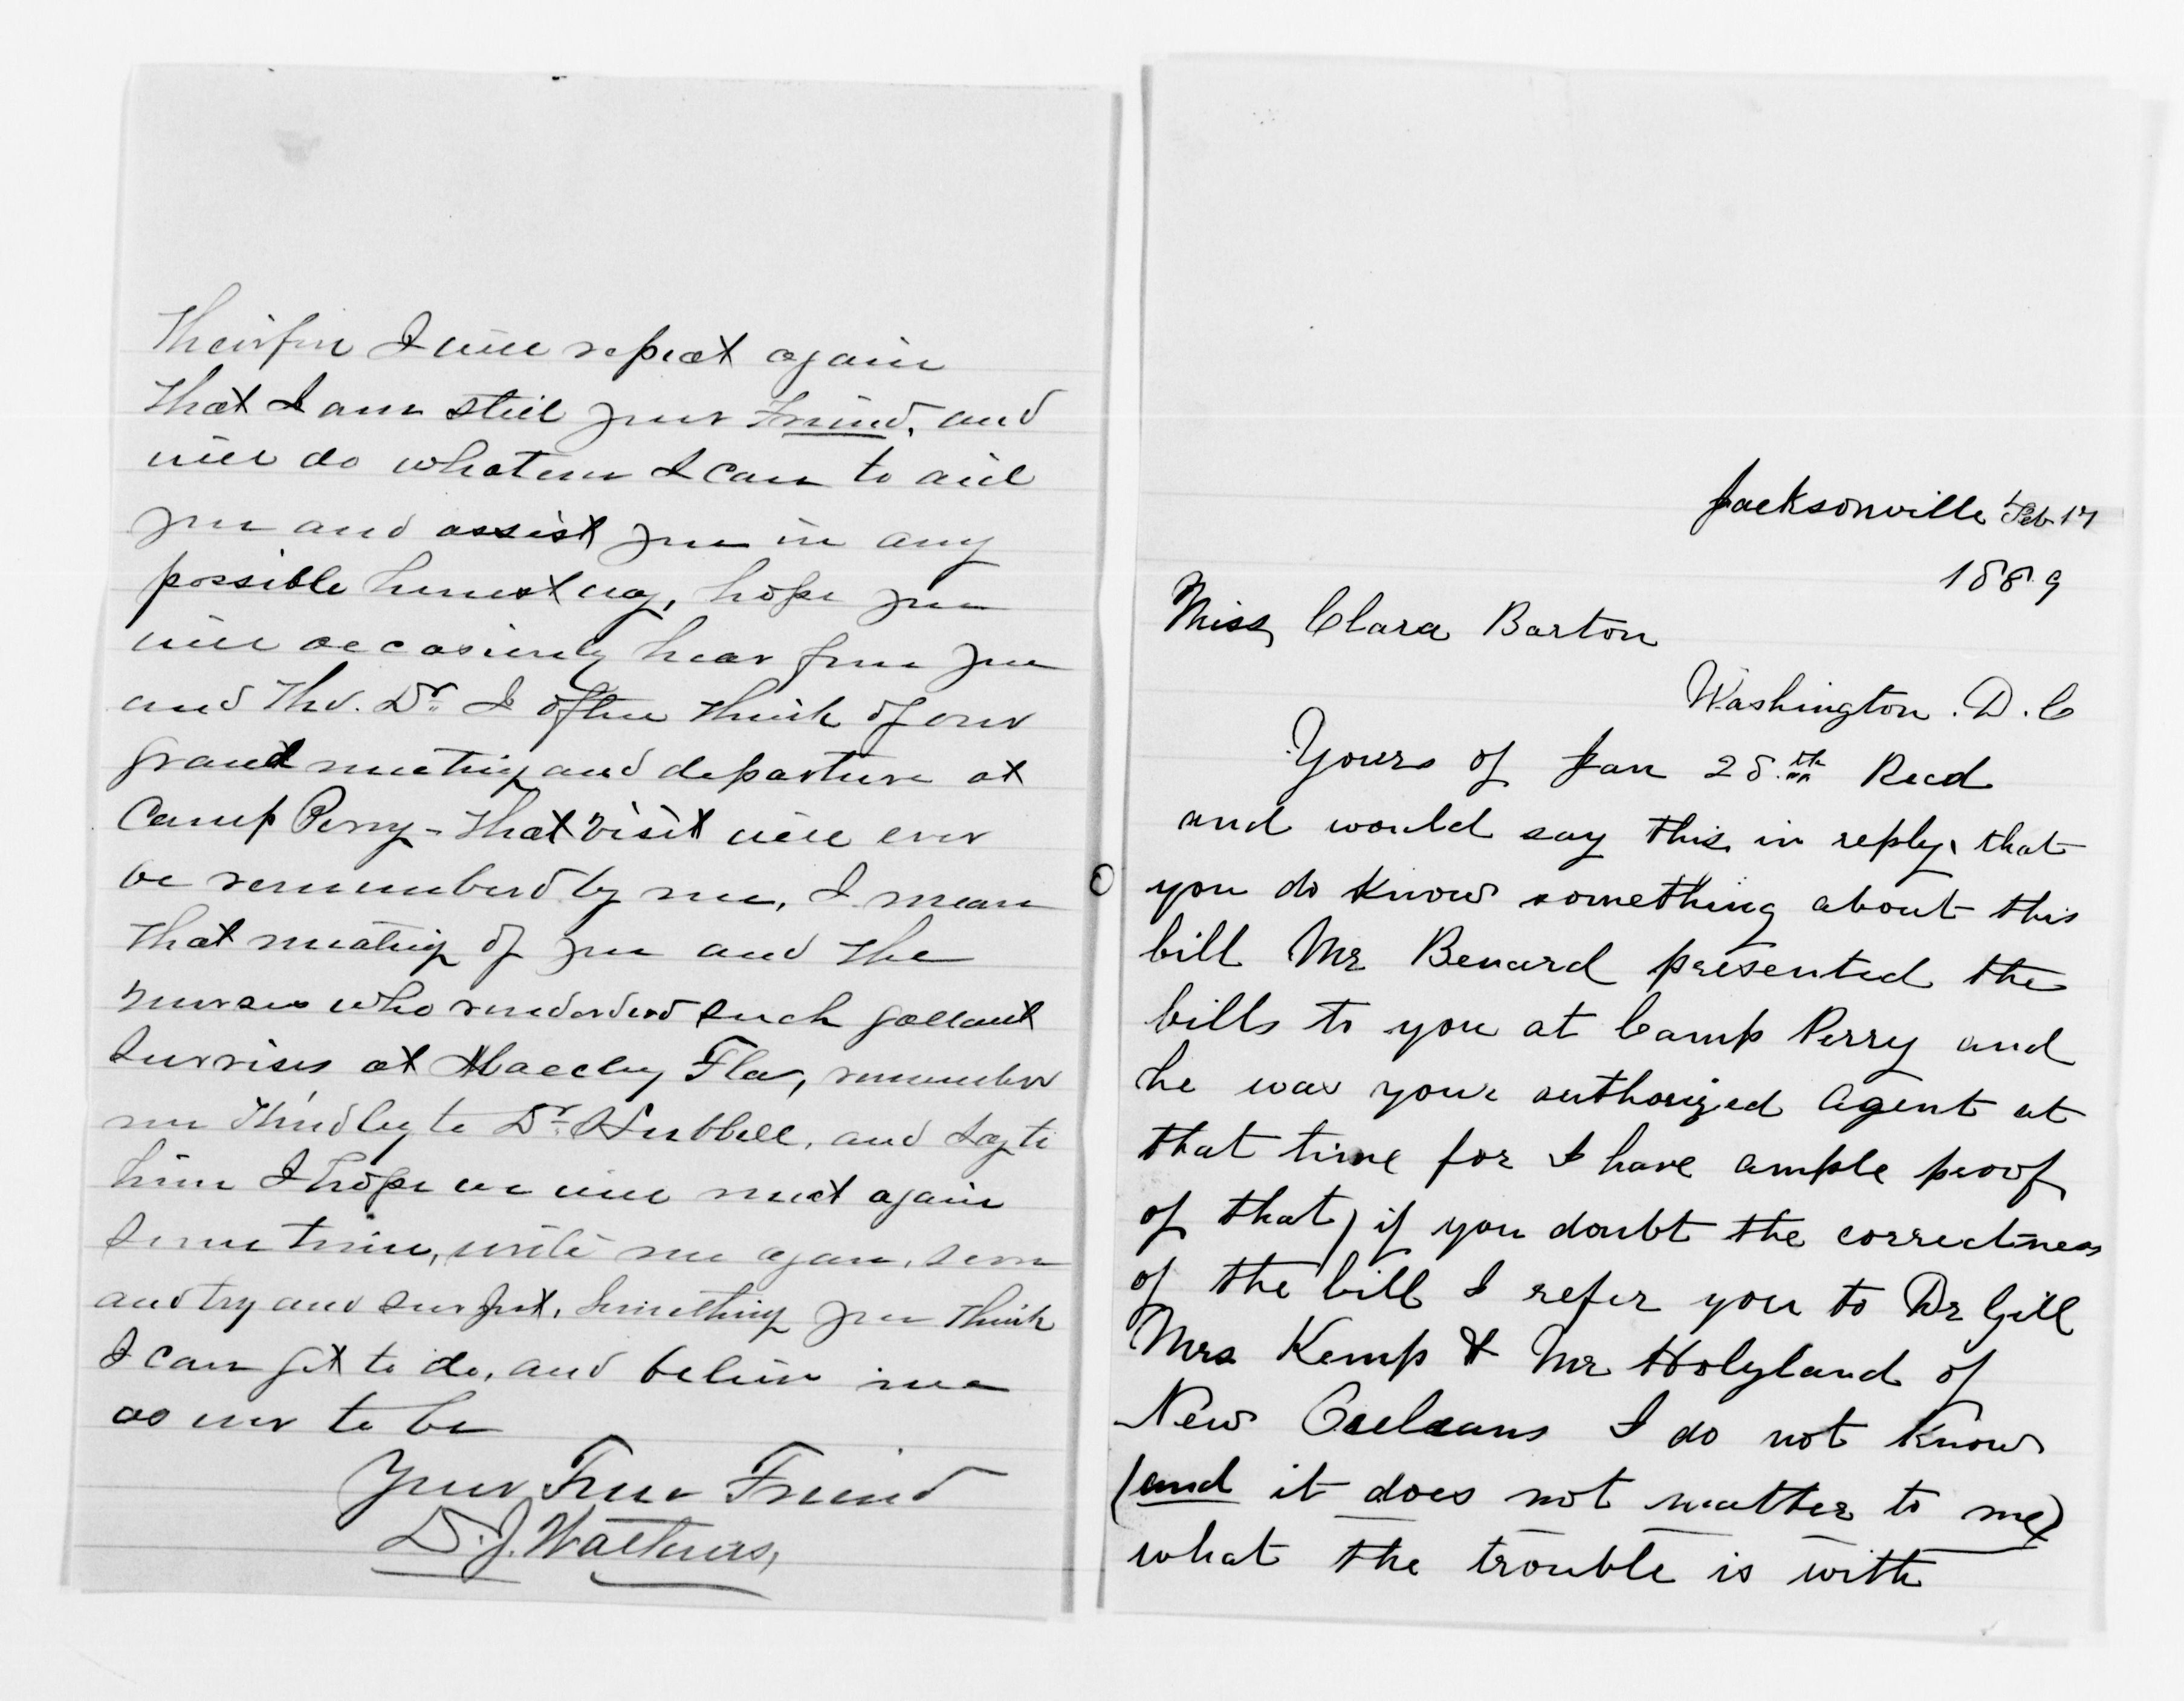 Theirfore I will repeat again
that I am still your Friend, and
will do whatever I can to aid
you and assist you in any
possible honest way, hope you
will occasionly hear from you
and the. Dr. I often think of our
grand meeting and departure at
Camp Perry - that visit will ever
be rememberd by me, I mean
that meeting of you and the
nurses who renderded such gallant
survises at Macclny Fla, remember
me kindley to Dr. Hubbell, and say to
him I hope we will meet again
some time, write me again, soon
and try and sugjest, something you think
I can get to do, and believe me
as ever to be
Your True Friend
D. J.
Jacksonville Feb 17
1889
Miss Clara Barton
Washington. D. C
Yours of Jan 28th Recd
and would say this in reply, that
you do know something about this
bill Mr Benard presented the
bills to you at Camp Perry and
he was your authorized agent at
that time for I have ample proof
of that, if you doubt the correctness
of the bill I refer you to Dr Gill
Mrs Kemp & Mr Holyland of
New Oreleans I do not know
(and it does not matter to me)
what the trouble is with